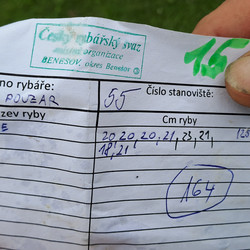 Český rybářský svaz
místní organizace
BENEŠOV, okres Benešov
1.5
no rybáře:
POUZAR
55
Číslo stanoviště:
zev ryby
Cm ryby
E
20, 20, 20, 21, 23, 21,
18, 21
164